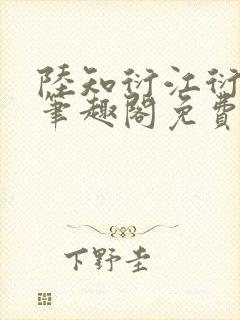 陸知衍江衍
筆趣閣免費
下野圭